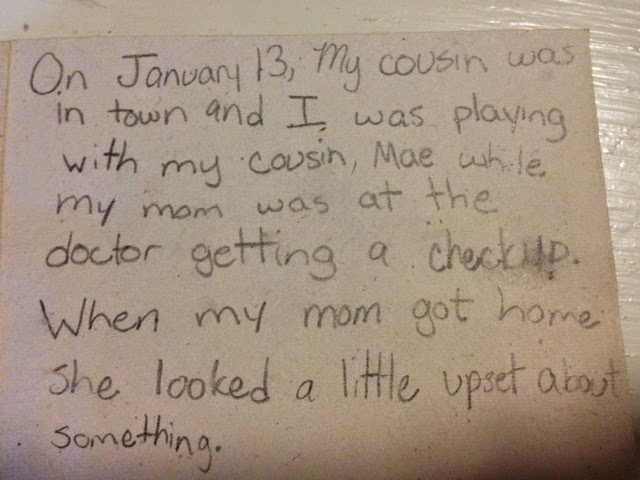 On January 13, My cousin was
in town and I was playing
with my cousin, Mae while
my mom was at the
doctor getting a checkup.
When my mom got home
she looked a little upset about
something.